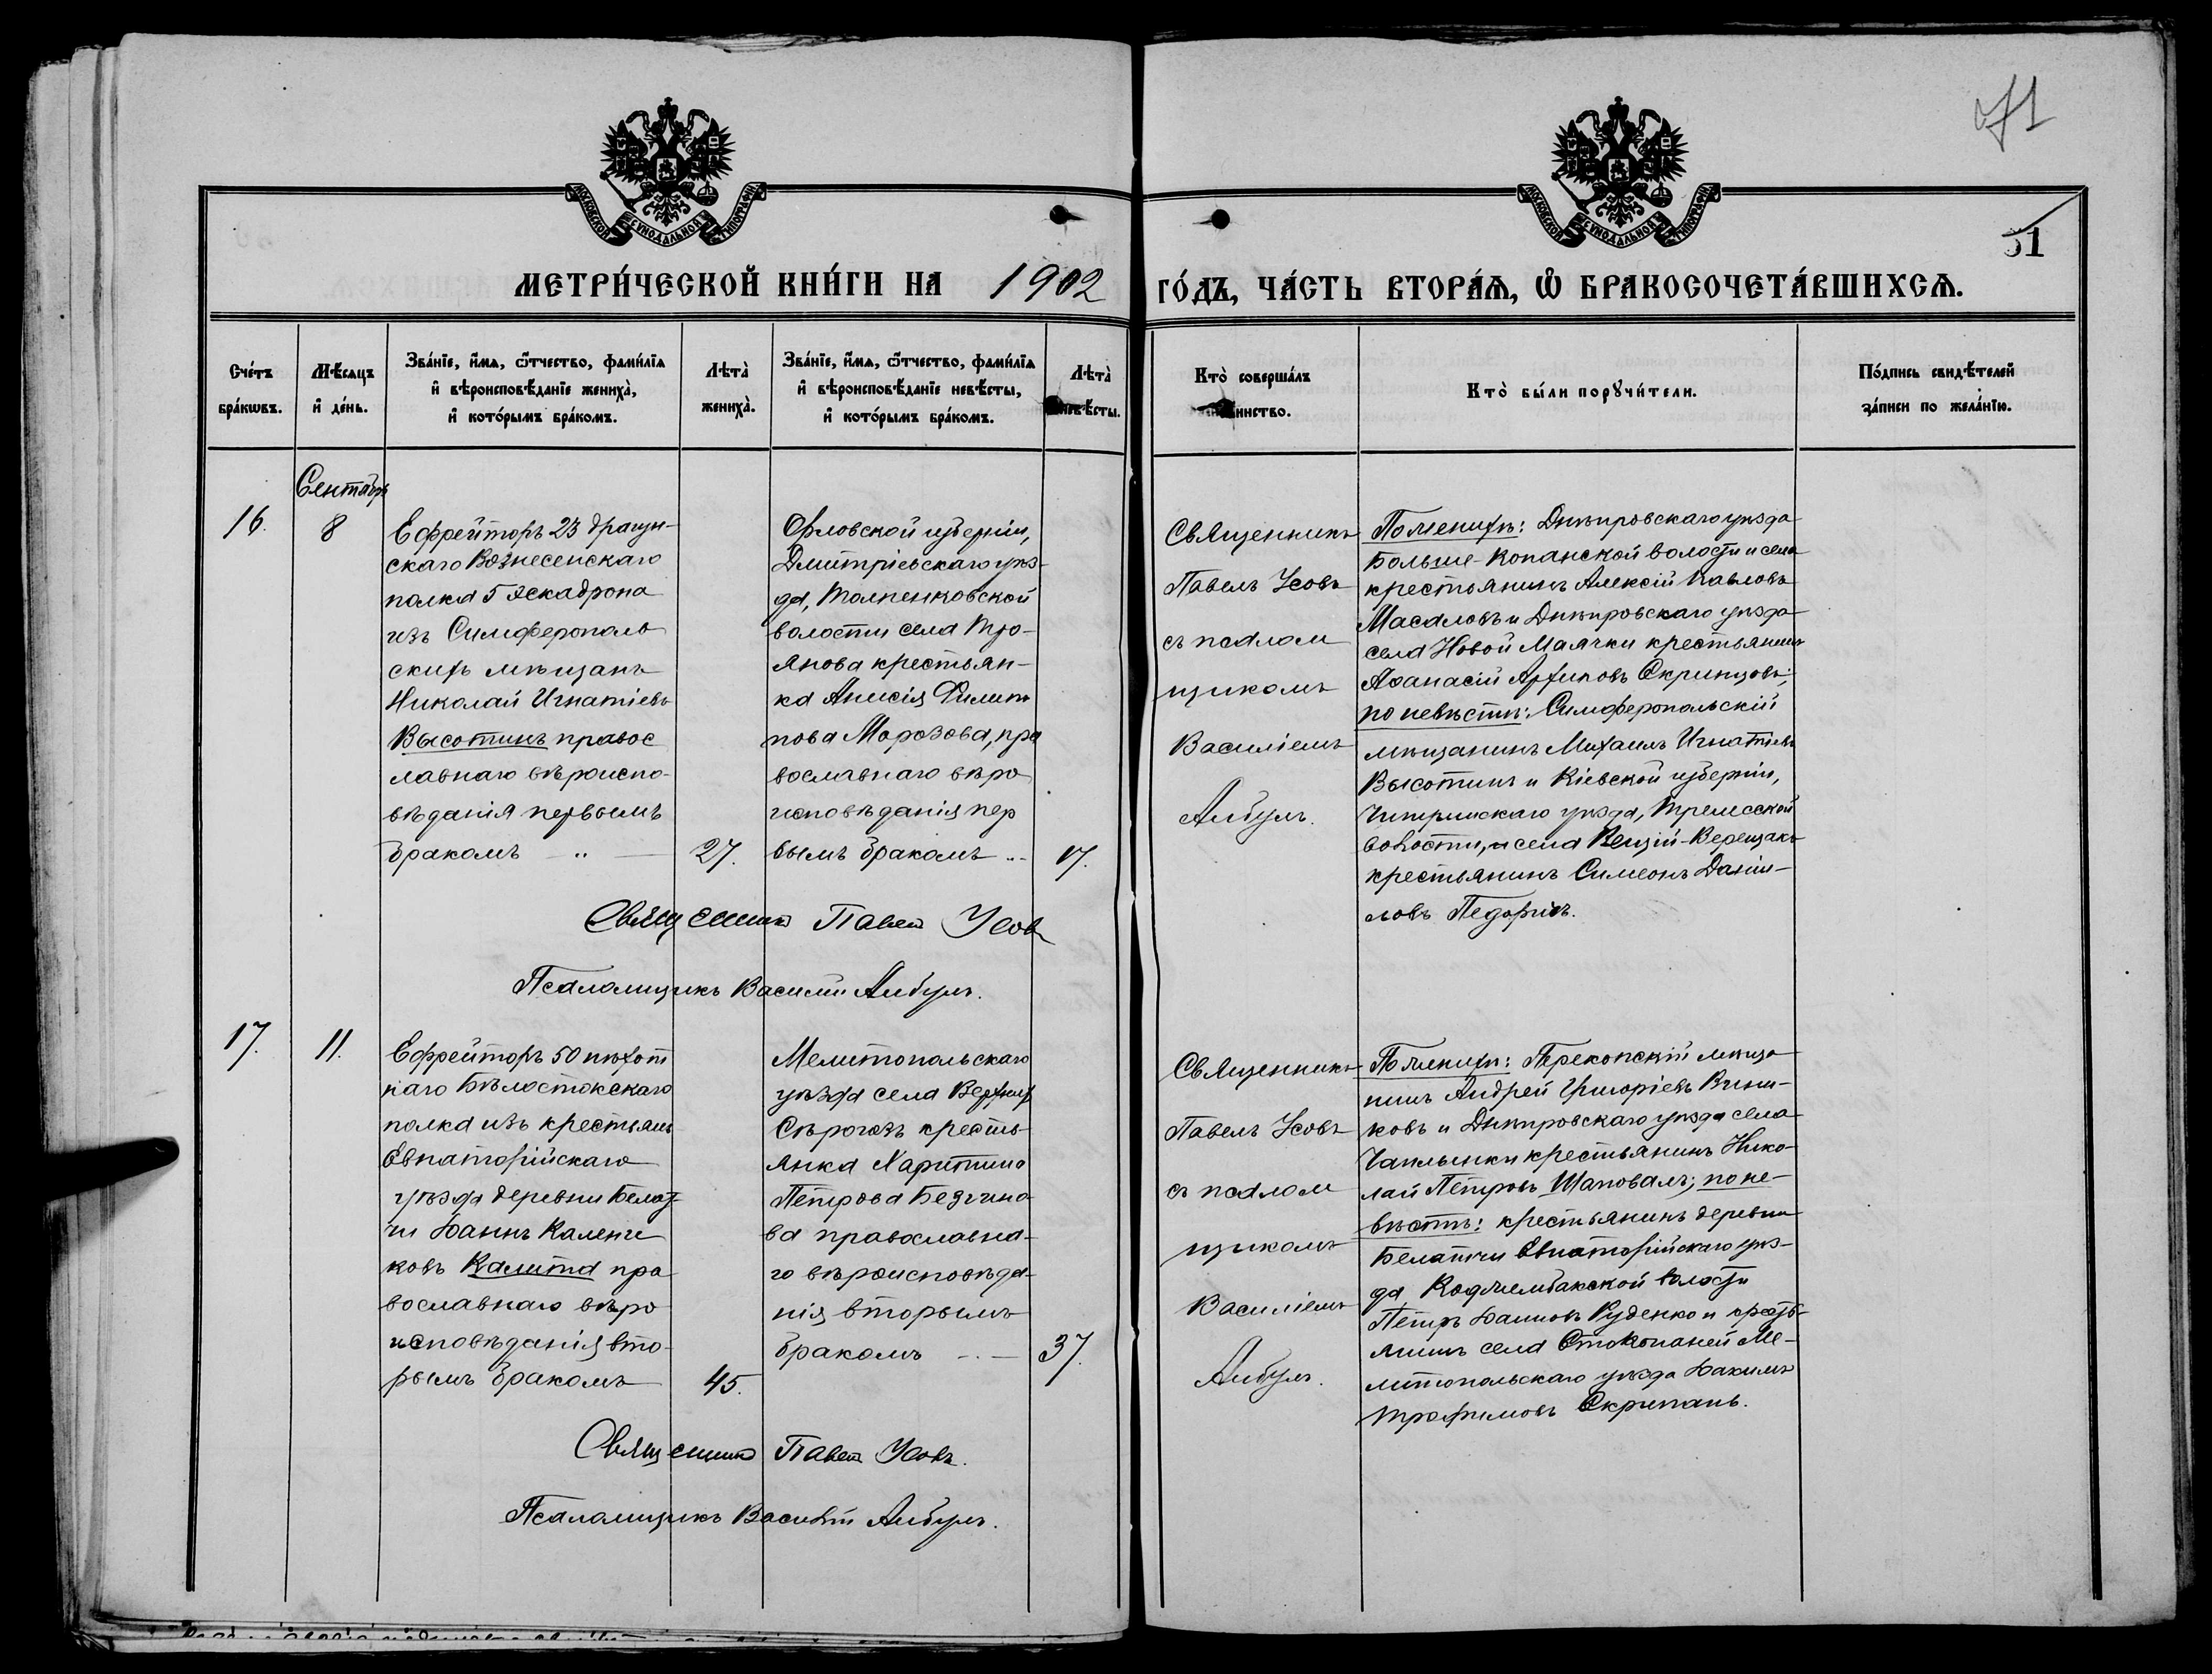 71
МОСКОВСКОЙ СѴНОДАЛЬНОЙ ТИПОГРАФІИ
МОСКОВСКОЙ СѴНОДАЛЬНОЙ ТИПОГРАФІИ
51
МЕТРИ́ЧЕСКОЙ КНИ́ГИ НА 1902 ГО́ДЪ, ЧА́СТЬ ВТОРА́Ѧ, Ѡ҆ БРАКОСОЧЕТА́ВШИХСѦ.
Сче́тъ
бра́кωвъ.
Мѣ́сяцъ
и҆ де́нь.
Зва́нїе, и҆́мѧ, ѻ҆́тчество, фамилїѧ
и҆ вѣроисповѣ́данїе жениха̀,
и҆ кото́рымъ бра́комъ.
Лѣта̀
жениха̀.
Зва́нїе, и҆́мѧ, ѻ҆́тчество, фамилїѧ
и҆ вѣроисповѣ́данїе невѣ́сты,
и҆ кото́рымъ бра́комъ.
Лѣта̀
невѣ́сты.
Кто̀ соверша́лъ
таинство.
Кто̀ бы́ли порꙋчи́тели.
По́дпись свидѣ́телей
за́писи по жела́нїю.
Сентябрь
16.
8
Ефрейторъ 23 драгун-
скаго Вознесенскаго
полка 5 эскадрона
изъ Симферополь
скихъ мѣщанъ
Николай Игнатіевъ
Высотинъ правос
лавнаго вѣроиспо-
вѣданія первымъ
бракомъ
27.
Орловской губерніи,
Дмитріевскаго уѣз-
да,
волости села Тро-
янова крестьян-
ка Анисія Филип
пова Морозова, пра
вославнаго вѣро
исповѣданія пер
вымъ бракомъ
17.
Священникъ
Павелъ Усовъ
съ псалом
щикомъ
Василіемъ
Албулъ.
По женихѣ: Днѣпровскаго уѣзда
Больше-Копанской волости и села
крестьянинъ Алексій Павловъ
Масаловъ и Днѣпровскаго уѣзда
села Новой Маячки крестьянинъ
Аѳанасій Архиповъ Скрипцовъ;
по невѣстѣ: Симферопольскій
мѣщанинъ Михаилъ Игнатіевъ
Высотинъ и Кіевской губерніи,
Чигиринскаго уѣзда,
волости, и села
крестьянинъ Симеонъ Даніи-
ловъ
Священникъ Павелъ Усовъ
Псаломщикъ Василій Албулъ.
17.
11.
Ефрейторъ 50 пѣхот
наго Бѣлостокскаго
полка изъ крестьянъ
Евпаторійскаго
уѣзда деревни
чи Іоаннъ Калени
ковъ Калита пра
вославнаго вѣро
исповѣданія вто
рымъ бракомъ
45.
Мелитопольскаго
уѣзда села Верхних
Сѣрогозъ кресть
янка Харитина
Петрова Безчино
ва православна-
го вѣроисповѣда-
нія вторымъ
бракомъ
37.
Священникъ
Павелъ Усовъ
съ псалом
щикомъ
Василіемъ
Албулъ.
По женихѣ: Перекопскій мѣща
нинъ Андрей Григоріевъ
ковъ и Днѣпровскаго уѣзда села
Чаплынки крестьянинъ Нико-
лай Петровъ Шаповалъ; по не-
вѣстѣ: крестьянинъ деревни
Евпаторійскаго уѣз-
да Коджамбакской волости
Петръ Іоанновъ Руденко и кресть
янинъ села Стокопаней Ме-
литопольскаго уѣзда Іоакимъ
Трофимовъ Скрипань.
Священникъ Павелъ Усовъ.
Псаломщикъ Василій Албулъ.